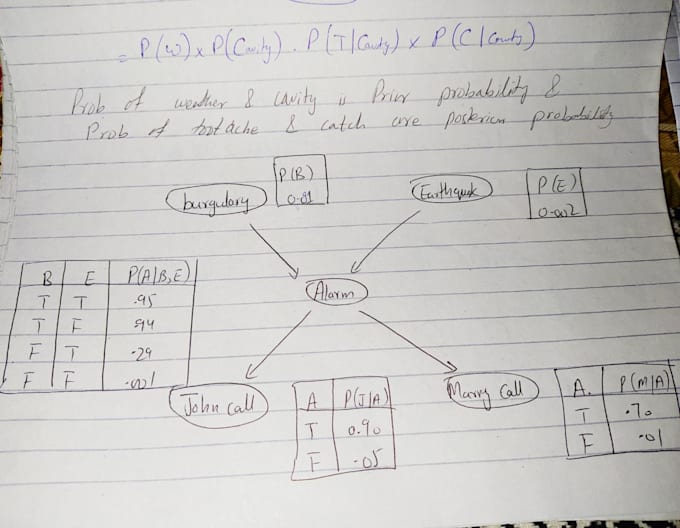 = P(W) x P(Cavity) . P(T|Cavity) x P(C|Cavity)
Prob of weather & cavity is Prior probability &
Prob of tootache & catch are posterium probability
P(B)
0.01
burgulary
Earthquak
P(E)
0.002
B E P(A|B,E)
T T .95
T F .94
F T .29
F F .001
Alarm
John call
A P(J|A)
T 0.90
F .05
Marry Call
A. P(M|A)
T .70
F .01